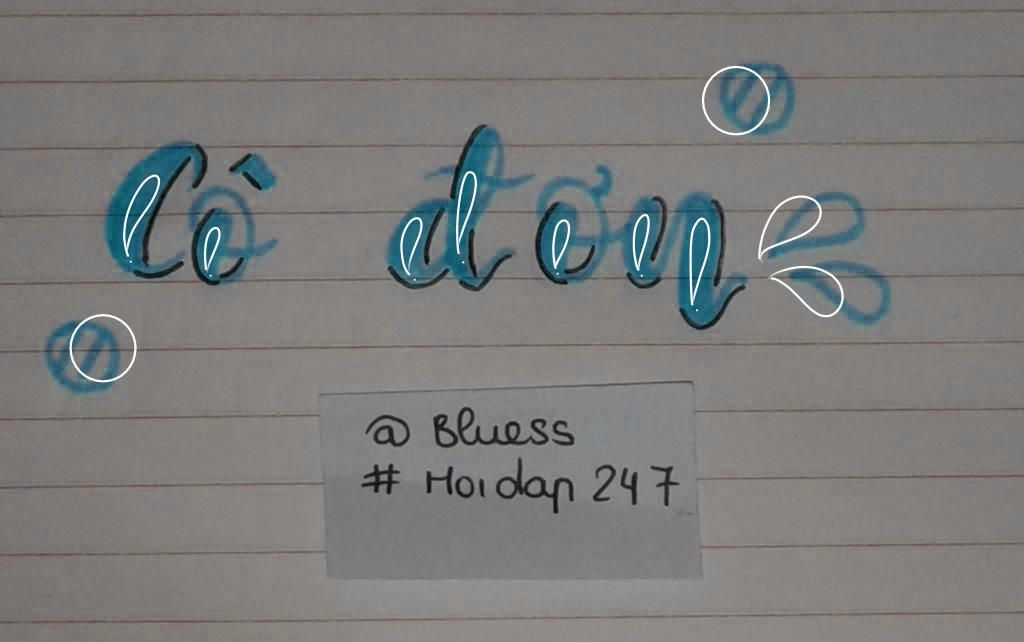 Cô đơn
@ Bluess
# Hoidap 247